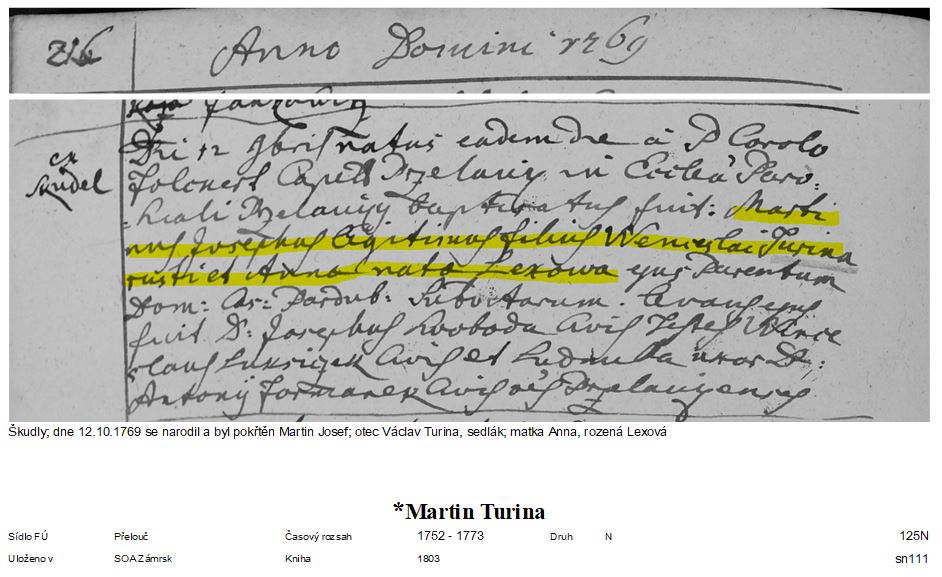 216 Anno Domini 1769
ex
Skudel
Die 12 9bris natus eadem die a P Carolo
Capell Przelaucy in Eccl Paro:
chiali Przelaucy baptizatus fuit: Marti
nus Josephus legitimus filius Wenceslai Turina
rustici et Anna nata Lexowa ejus Parentum
Dom: Pardub: Subditorum. Levans
fuit D: Josephus Swoboda Civis Testes Wence
slaus Civis et Ludmilla uxor D:
Antonij Formanek Civis Przelaucensis
Škudly; dne 12.10.1769 se narodil a byl pokřtěn Martin Josef; otec Václav Turina, sedlák; matka Anna, rozená Lexová
*Martin Turina
Sídlo FÚ Přelouč Časový rozsah 1752 - 1773 Druh N 125N
Uloženo v SOA Zámrsk Kniha 1803 sn111